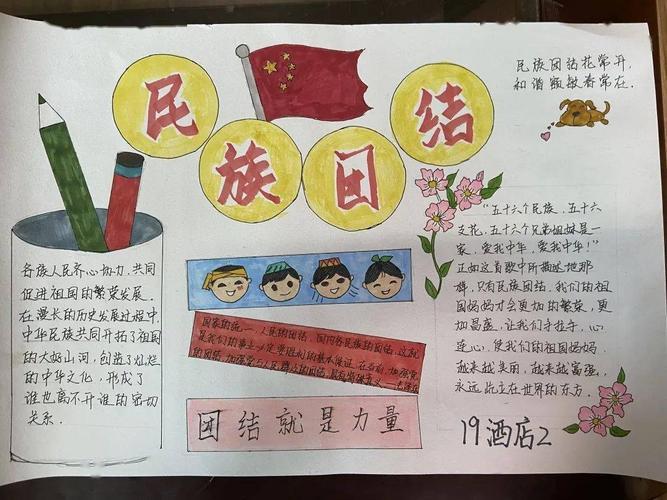 民族团结
民族团结花常开，
和谐
春常在．
各族人民齐心协力，共同
促进祖国的繁荣发展．
在漫长的历史发展过程中，
中华民族共同开拓了祖国
的大好山河，创造了灿烂
的中华文化，形成了
谁也离不开谁的密切
关系．
"五十六个民族，五十六
支花，五十六个兄弟姐妹是一
家，爱我中华，爱我中华！"
正如这首歌中所描述地那
样，只有民族团结，我们的祖国
妈妈才会更加的繁荣，更
加昌盛，让我们手拉手，心
连心，使我们的祖国妈妈
越来越美丽，越来越富强，
永远屹立在世界的东方．
国家的统一，人民的团结，国内各民族的团结，这就
是我们的事业必定要胜利的基本保证
的团结，加强党
团结就是力量
19酒店2